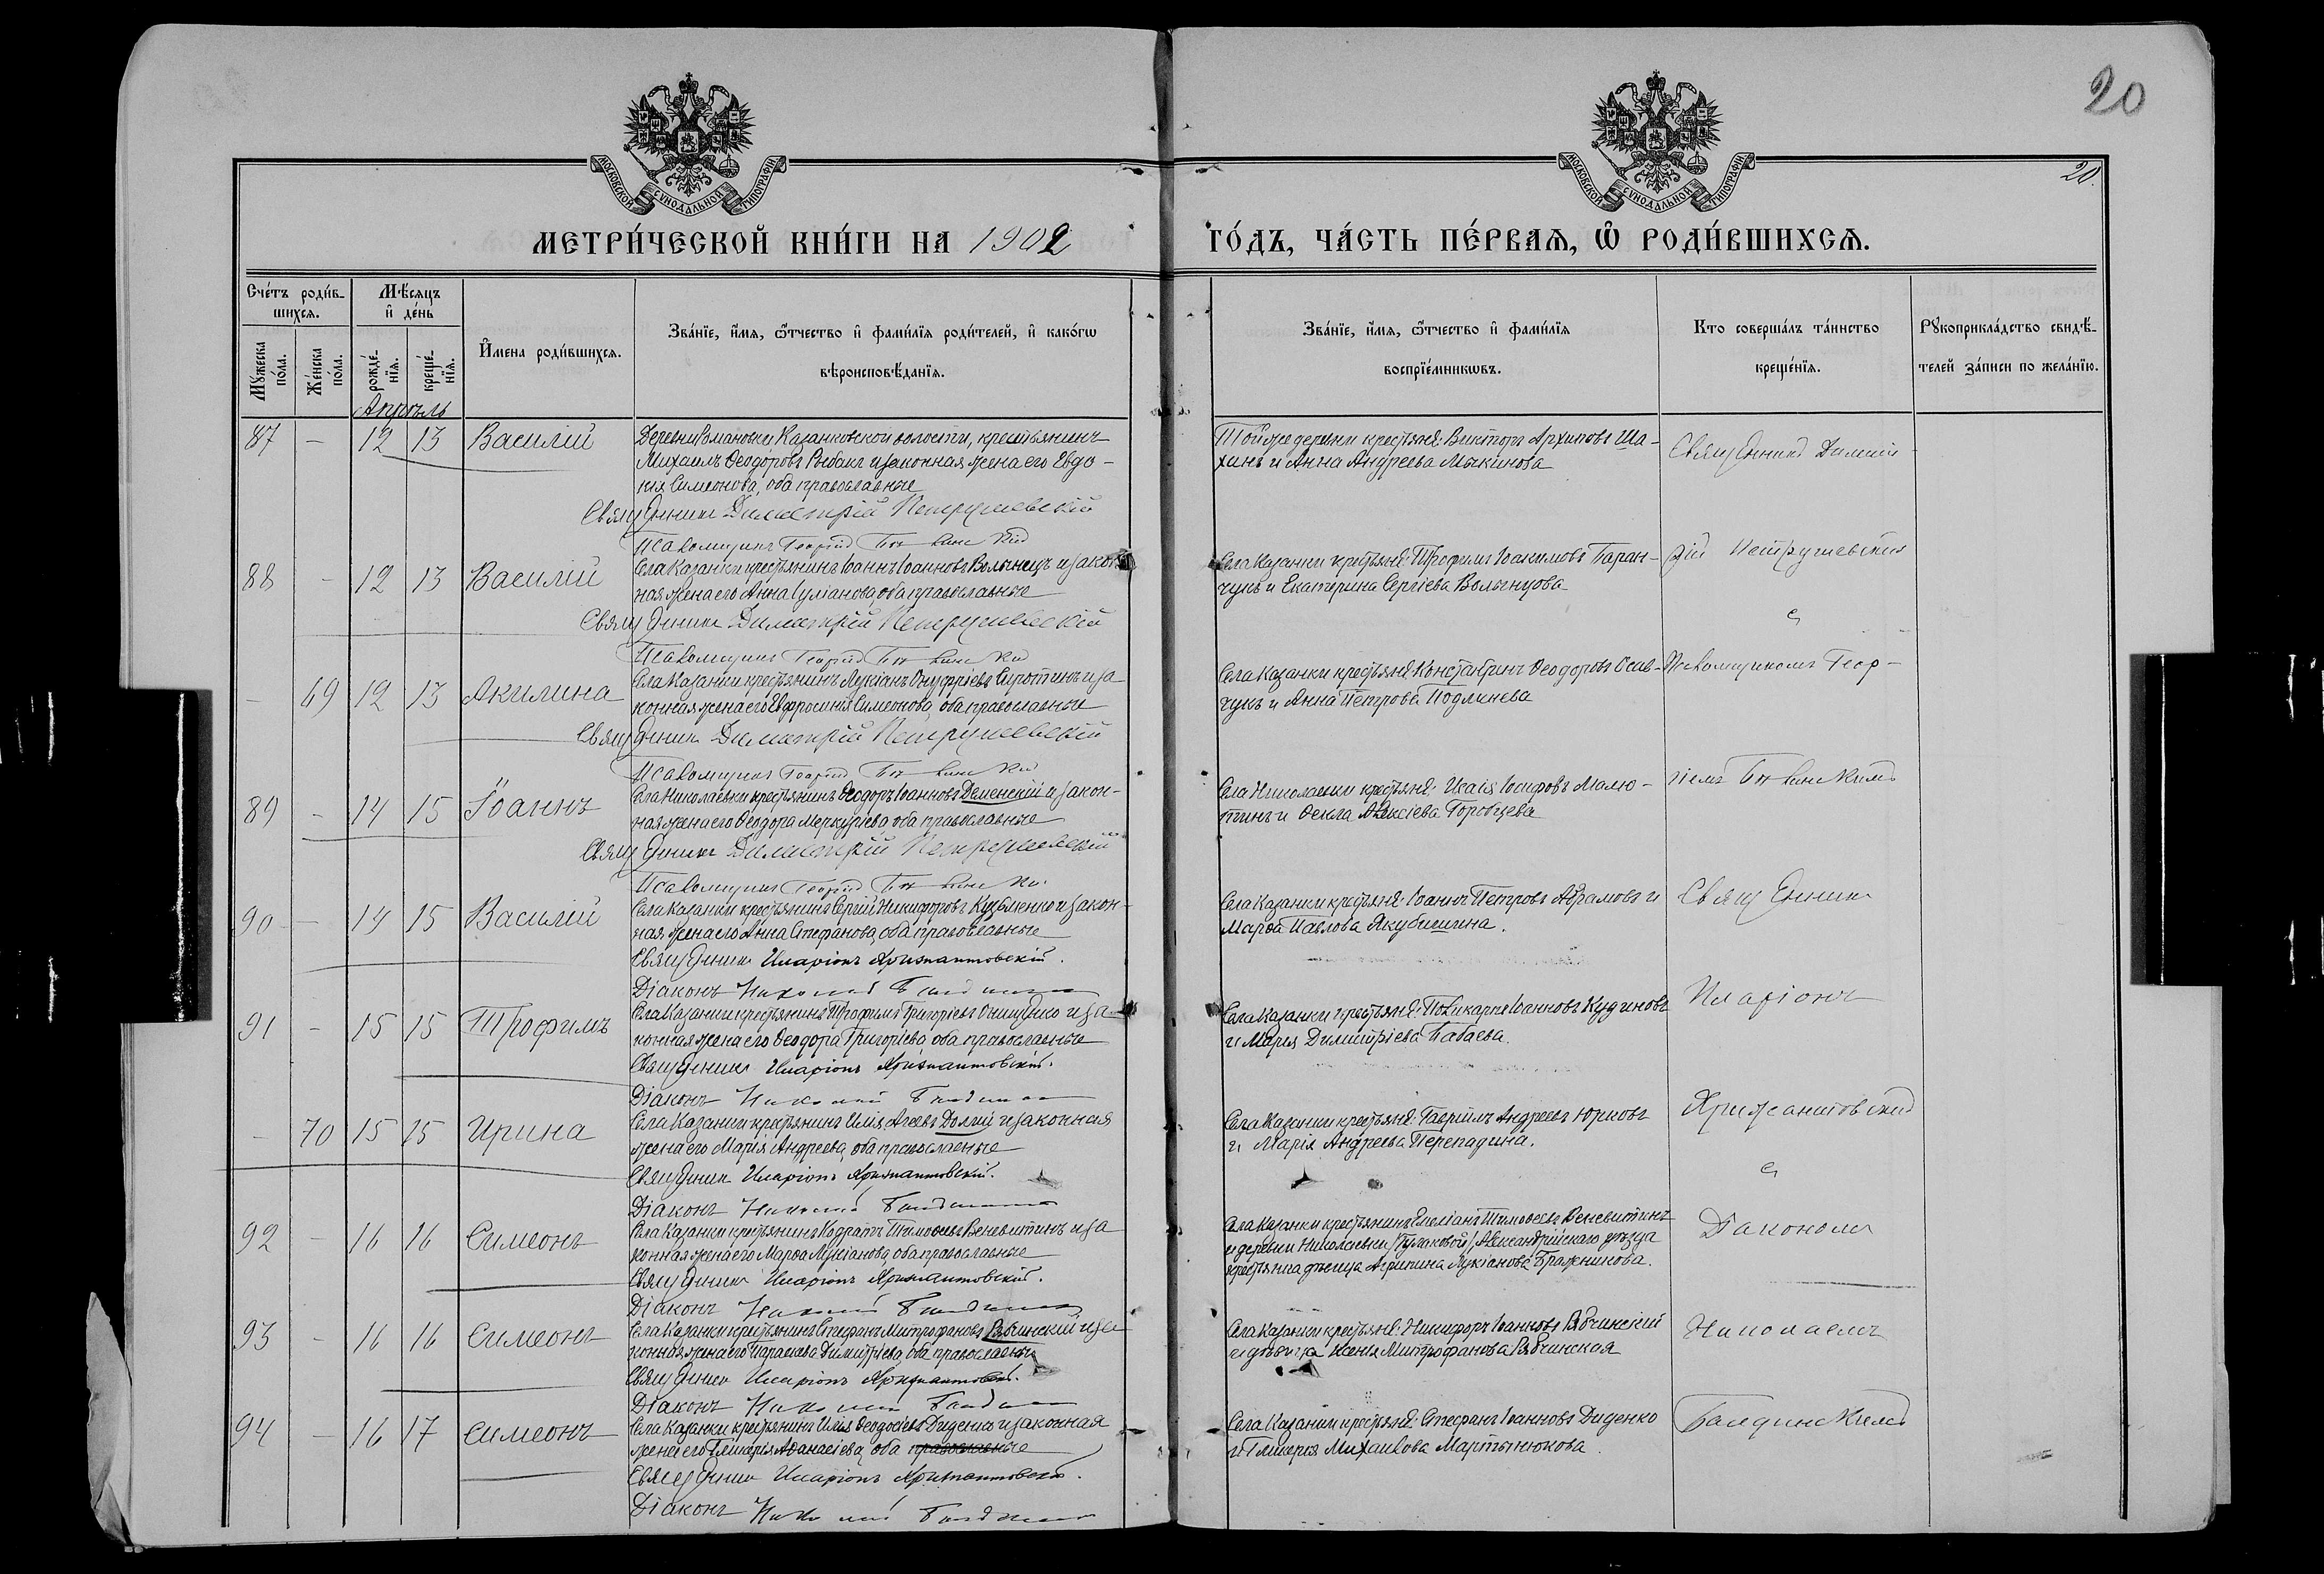 20
20.
МОСКОВСКОЙ СѴНОДАЛЬНОЙ ТИПОГРАФІИ
МОСКОВСКОЙ СѴНОДАЛЬНОЙ ТИПОГРАФІИ
МЕТРИ́ЧЕСКОЙ КНИ́ГИ НА 1902 ГО́ДЪ, ЧА́СТЬ ПЕ́РВАѦ, Ѽ РОДИ́ВШИХСѦ.
Сче́тъ роди́в-
шихсѧ.
Мꙋ́жеска по́ла.
Же́нска по́ла.
Мѣ́сѧцъ
и҆ де́нь
рожде́-нїѧ.
креще́-нїѧ.
И҆мена роди́вшихсѧ.
Зва́нїе, и҆́мѧ, ѻ҆́тчество и҆ фами́лїѧ роди́телей, и҆ како́гѡ
вѣроисповѣ́данїѧ.
Зва́нїе, и҆́мѧ, ѻ҆́тчество и҆ фами́лїѧ
воспрїе́мникѡвъ.
Кто соверша́лъ та́инство
креще́нїѧ.
Рꙋкоприкла́дство свидѣ́-
телей за́писи по жела́нїю.
Апрѣль
87 - 12 13 Василій
Деревни Романовки Казанковской волости, крестьянинъ
Михаилъ Ѳеодоровъ Рыбакъ и законная жена его Евдо-
кія Симеонова, оба православные
Священникъ Димитрій Петрушевскій
Псаломщикъ Георгій
Той же деревни крестьяне: Викторъ Архиповъ Ша-
хинъ и Анна Андреева Мыкинова
Священникъ Димит-
88 - 12 13 Василій
Села Казанки крестьянинъ Іоаннъ Іоанновъ Волынецъ и закон-
ная жена его Анна Іуліанова, оба православные
Священникъ Димитрій Петрушевскій
Псаломщикъ Георгій
Села Казанки крестьяне: Трофимъ Іоакимовъ Баран-
чукъ и Екатерина Сергіева Волынцова
рій Петрушевскій
с
- 69 12 13 Акилина
Села Казанки крестьянинъ Лукіанъ Онуфріевъ Сиротинъ и за
конная жена его Евфросинія Симеонова, оба православные
Священникъ Димитрій Петрушевскій
Псаломщикъ Георгій
Села Казанки крестьяне: Константинъ Ѳеодоровъ Осав-
чукъ и Анна Петрова Подлинева
Псаломщикомъ Геор-
89 - 14 15 Іоаннъ
Села Николаевки крестьянинъ Ѳеодоръ Іоанновъ Деменскій и закон-
ная жена его Ѳеодора Меркуріева, оба православные
Священникъ Димитрій Петрушевскій
Псаломщикъ Георгій
Села Николаевки крестьяне: Исаія Іосифовъ Малю-
тинъ и Ѳекла Алексіева Горобцева
гіемъ
90 - 14 15 Василій
Села Казанки крестьянинъ Сергій Никифоровъ Кузьменко и закон-
ная жена его Анна Стефанова, оба православные
Священникъ Иларіонъ Хрисантовскій.
Діаконъ Николай
Села Казанки крестьяне: Іоаннъ Петровъ Абрамовъ и
Марѳа Павлова Якубишина.
Священникъ
91 - 15 15 Трофимъ
Села Казанки крестьянинъ Трофимъ Григоріевъ Онищенко и за-
конная жена его Ѳеодора Григоріева, оба православные
Священникъ Иларіонъ Хрисантовскій.
Діаконъ Николай
Села Казанки крестьяне: Поликарпъ Іоанновъ Кудиновъ
и Марія Димитріева Бабаева.
Иларіонъ
- 70 15 15 Ирина
Села Казанки крестьянинъ Илія Агеевъ Долгій и законная
жена его Марія Андреева, оба православные
Священникъ Иларіонъ Хрисантовскій.
Діаконъ Николай
Села Казанки крестьяне: Гавріилъ Андреевъ Юрковъ
и Марія Андреева Перепадина.
Хрисантовскій
с
92 - 16 16 Симеонъ
Села Казанки крестьянинъ Кодратъ Тимоѳеевъ Веневитинъ и за
конная жена его Марѳа Лукіанова, оба православные
Священникъ Иларіонъ Хрисантовскій.
Діаконъ Николай
Села Казанки крестьянинъ Емеліанъ Тимоѳеевъ Веневитинъ
и деревни Николаевки (Гулаковой), Александрійскаго уѣзда
крестьянка дѣвица Агрипина Лукіанова Бражникова.
Діакономъ
93 - 16 16 Симеонъ
Села Казанки крестьянинъ Стефанъ Митрофановъ Рябчинскій и за
конная жена его Параскева Димитріева, оба православные
Священникъ Иларіонъ Хрисантовскій.
Діаконъ Николай
Села Казанки крестьяне: Никифоръ Іоанновъ Рябчинскій
и дѣвица Ксенія Митрофанова Рябчинская
Николаемъ
94 - 16 17 Симеонъ
Села Казанки крестьянинъ Илія Ѳеодосіевъ Диденко и законная
жена его Гликерія Аѳанасіева, оба православные
Священникъ Иларіонъ Хрисантовскій.
Діаконъ Николай
Села Казанки крестьяне: Стефанъ Іоанновъ Диденко
и Гликерія Михаилова Мартынюкова.